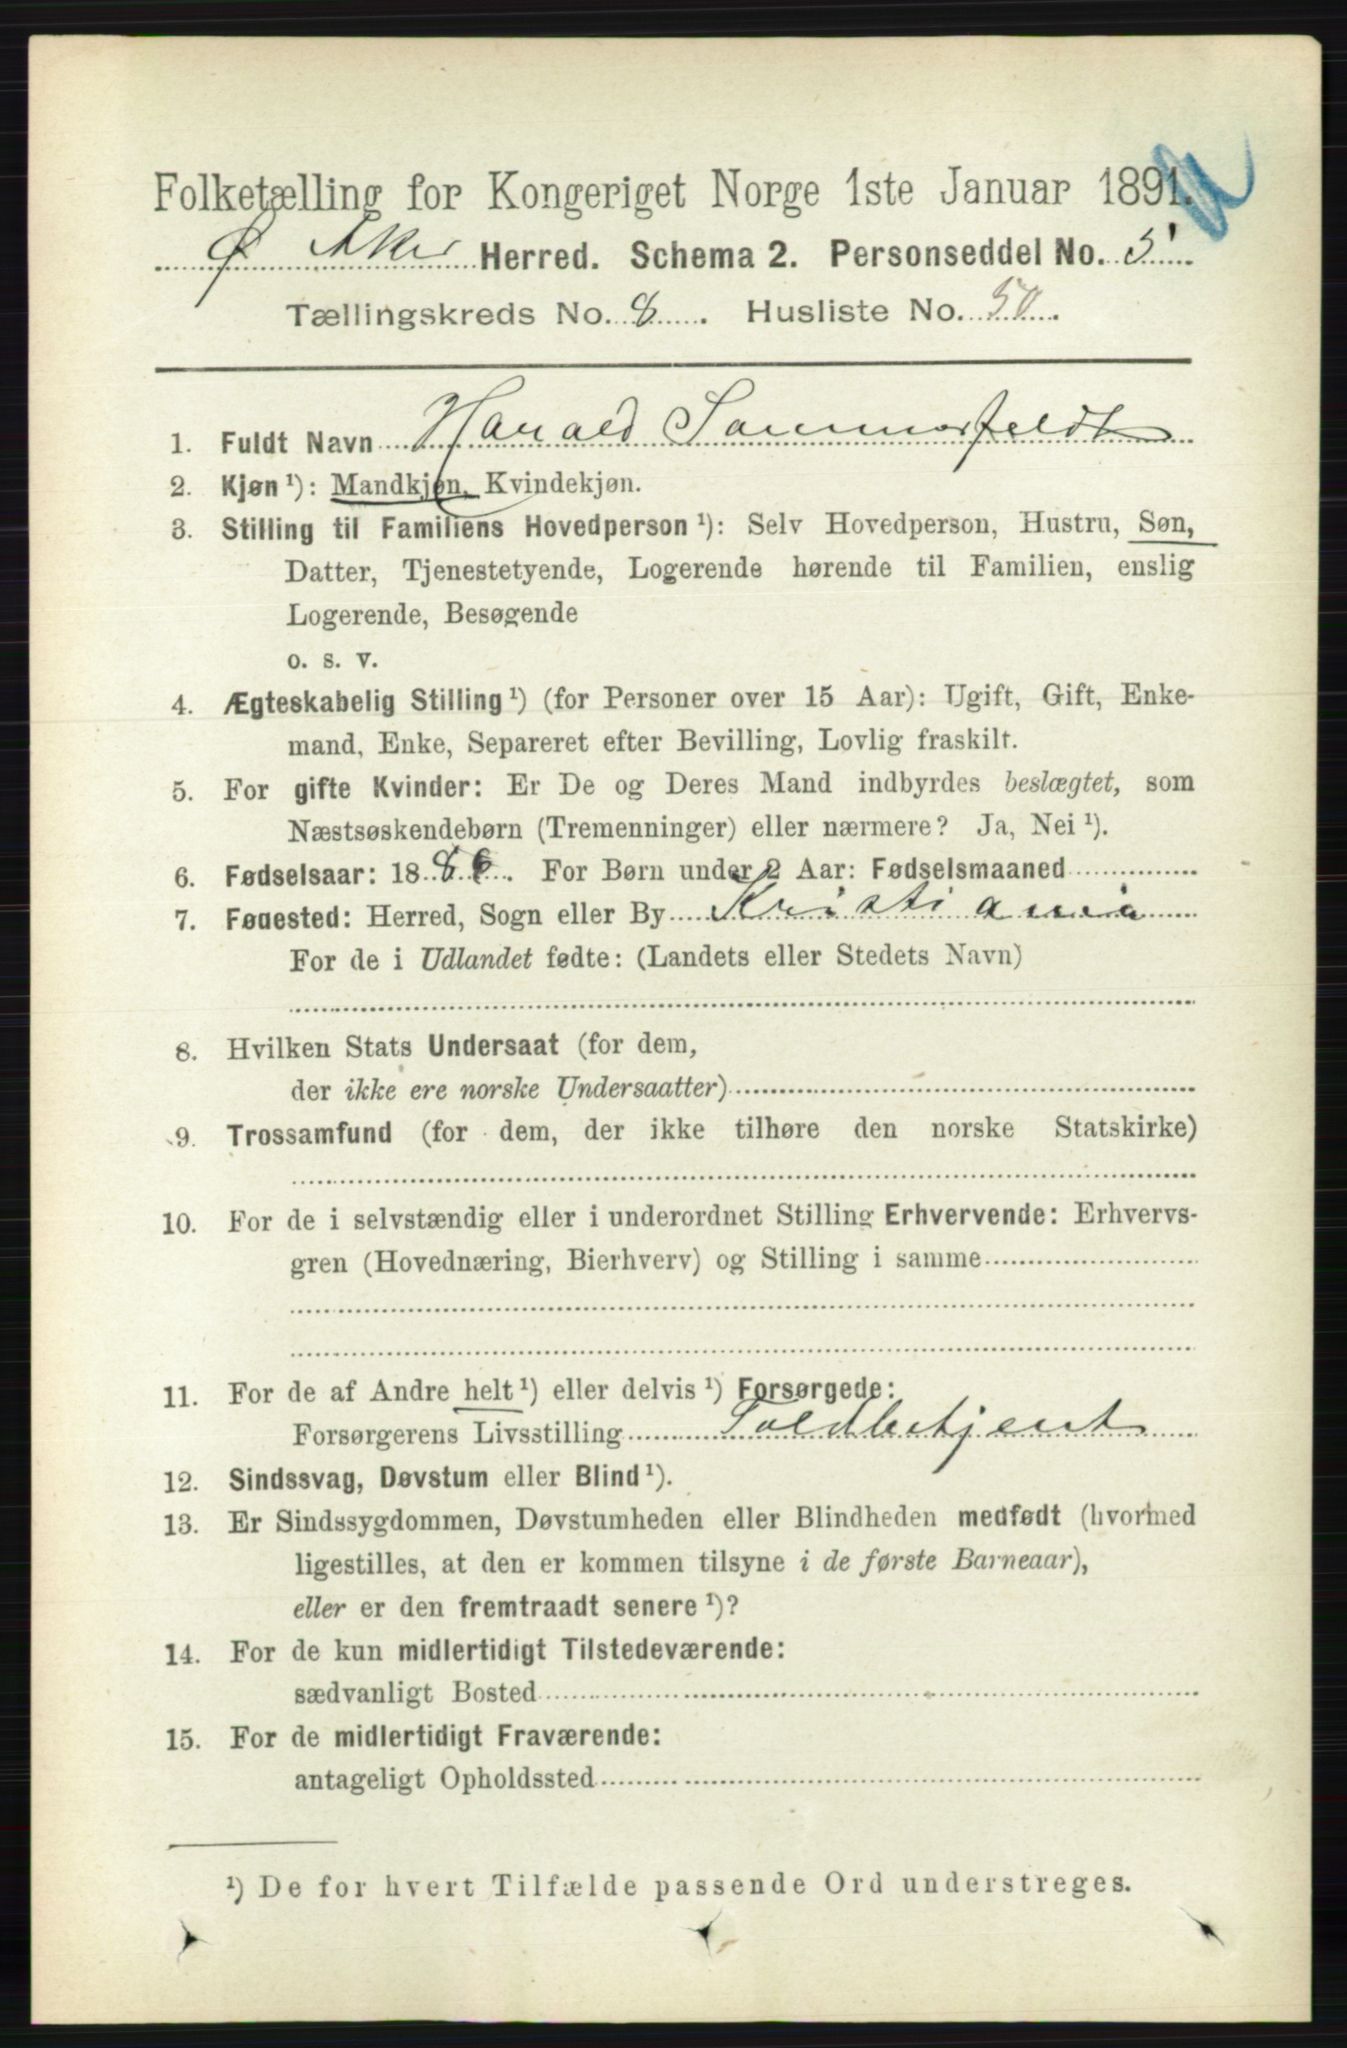 Folketælling for Kongeriget Norge 1ste Januar 1891.
Ø Aker Herred. Schema 2. Personseddel No. 5
Tællingskreds No. 8. Husliste No. 50.
1. Fuldt Navn Harald Sommerfeldt
2. Kjøn ¹): Mandkjøn, Kvindekjøn.
3. Stilling til Familiens Hovedperson ¹): Selv Hovedperson, Hustru, Søn,
Datter, Tjenestetyende, Logerende hørende til Familien, enslig
Logerende, Besøgende
o. s. v.
4. Ægteskabelig Stilling ¹) (for Personer over 15 Aar): Ugift, Gift, Enke-
mand, Enke, Separeret efter Bevilling, Lovlig fraskilt.
5. For gifte Kvinder: Er De og Deres Mand indbyrdes beslægtet, som
Næstsøskendebørn (Tremenninger) eller nærmere? Ja, Nei ¹).
6. Fødselsaar: 1886. For Børn under 2 Aar: Fødselsmaaned
7. Fødested: Herred, Sogn eller By Kristiania
For de i Udlandet fødte: (Landets eller Stedets Navn)
8. Hvilken Stats Undersaat (for dem,
der ikke ere norske Undersaatter)
9. Trossamfund (for dem, der ikke tilhøre den norske Statskirke)
10. For de i selvstændig eller i underordnet Stilling Erhvervende: Erhvervs-
gren (Hovednæring, Bierhverv) og Stilling i samme
11. For de af Andre helt ¹) eller delvis ¹) Forsørgede:
Forsørgerens Livsstilling Toldbetjent
12. Sindssvag, Døvstum eller Blind ¹).
13. Er Sindssygdommen, Døvstumheden eller Blindheden medfødt (hvormed
ligestilles, at den er kommen tilsyne i de første Barneaar),
eller er den fremtraadt senere ¹)?
14. For de kun midlertidigt Tilstedeværende:
sædvanligt Bosted
15. For de midlertidigt Fraværende:
antageligt Opholdssted
¹) De for hvert Tilfælde passende Ord understreges.